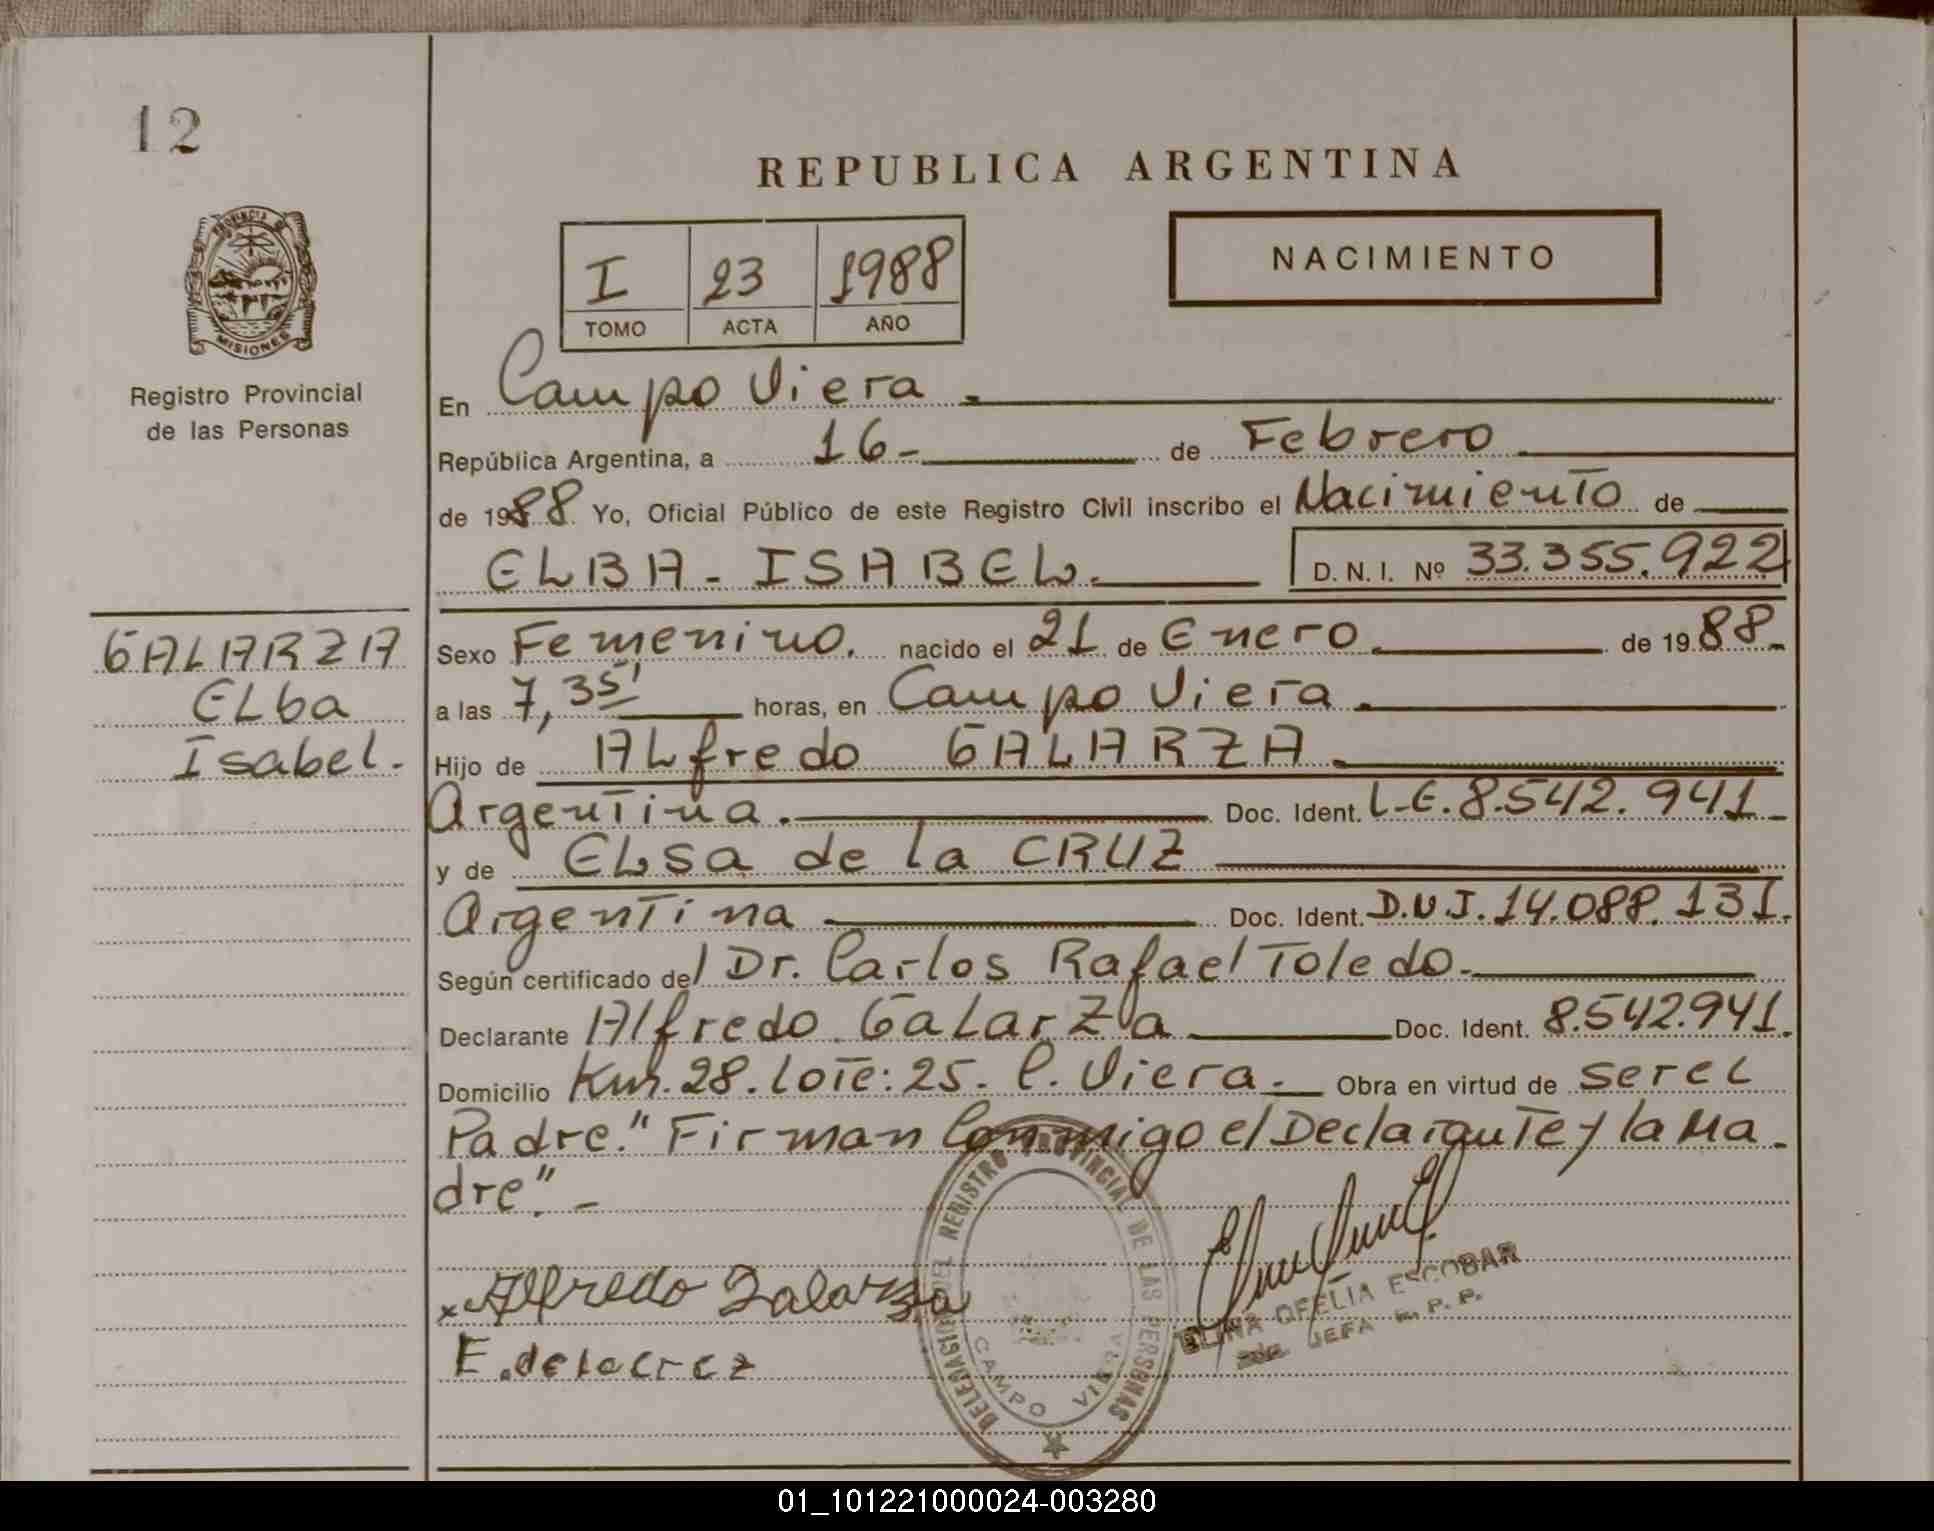 12
REPUBLICA ARGENTINA
PROVINCIA DE
MISIONES
Registro Provincial
de las Personas
I 23 1988
TOMO ACTA AÑO
NACIMIENTO
En Campo Viera.
República Argentina, a 16- de Febrero
de 1988 Yo, Oficial Público de este Registro Civil inscribo el Nacimiento de
ELBA - ISABEL. D. N. I. Nº 33.355.922
GALARZA
Elba
Isabel.
Sexo Femenino. nacido el 21 de Enero. de 1988-
a las 7,35' horas, en Campo Viera.
Hijo de Alfredo GALARZA.
Argentina. Doc. Ident. L.E. 8.542.941
y de ELsa de la CRUZ
Argentina Doc. Ident. D.N.I. 14.088.131.
Según certificado del Dr. Carlos Rafael Toledo.
Declarante Alfredo Galarza Doc. Ident. 8.542.941.
Domicilio Km. 28. Lote: 25. C. Viera. Obra en virtud de ser el
Padre." Firman Conmigo el Declarante y la Ma-
dre." -
x Alfredo Galarza
E. de la crez
DELEGACION DEL REGISTRO PROVINCIAL DE LAS PERSONAS
CAMPO VIERA
OFELIA ESCOBAR
JEFA R. P. P.
01_101221000024-003280